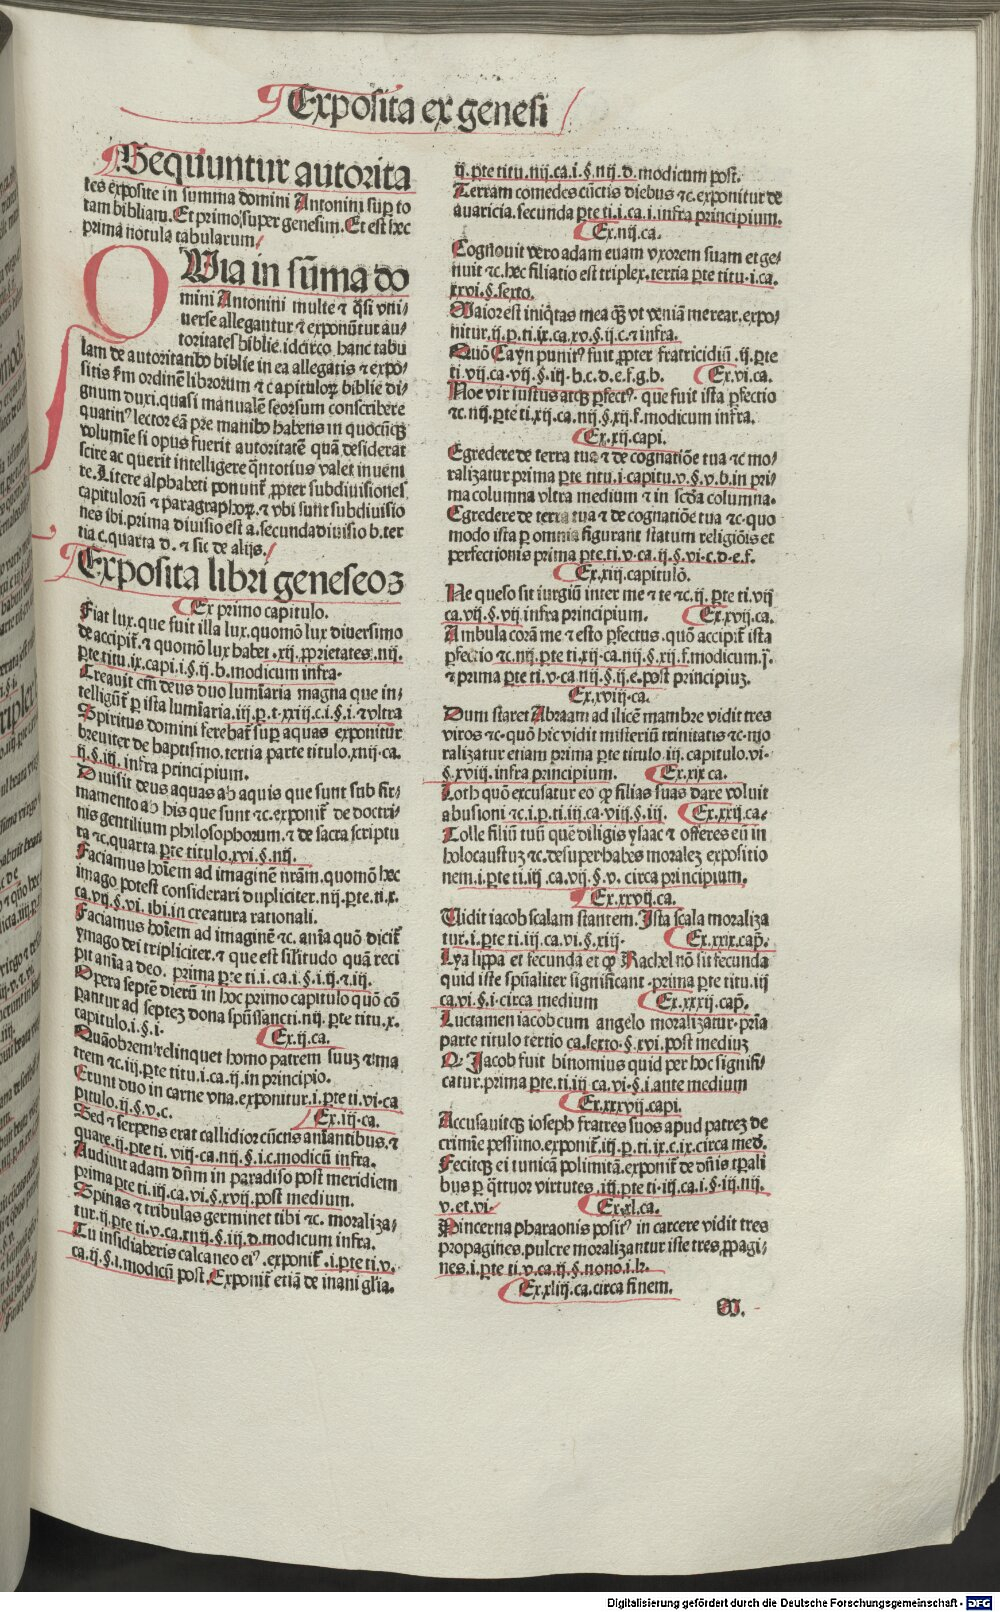 Exposita ex genesi
Sequuntur autorita
tes exposite in summa domini Antonini sup̱ to
tam bibliam. Et primo super genesim. Et est hec
prima notula tabularum
QVia in sūma do
mini Antonini multe ⁊ q̄si vni-
uerse allegantur ⁊ exponūtur au-
toritates biblie. idcirco hanc tabu
lam de autoritatibꝰ biblie in ea allegatis ⁊ expo-
sitis ẜm ordinē librorum ⁊ capitulorꝝ biblie di-
gnum duxi. quasi manualē seorsum conscribere
quatinꝰ lector eā pre manibꝰ habens in quocūqꝫ
volumīe si opus fuerit autoritatē quā desiderat
scire ac querit intelligere q̄ntotius valet inueni
re. Litere alphabeti ponunt̄ ꝓpter subdiuisiones
capitulorū ⁊ paragraphorꝝ. ⁊ vbi sunt subdiuisio
nes ibi. prima diuisio est a. secunda diuisio b. ter
tia c. quarta d. ⁊ sic de alijs.
Exposita libri geneseoꝫ
Ex primo capitulo.
Fiat lux. que fuit illa lux. quomō lux diuersimo
de accipit̄. ⁊ quomō lux habet .xij. ꝓprietates. iiij.
ꝑte titu. ix. capi. i. §. ij. b. modicum infra.
Creauit em̄ deus duo lumīaria magna que in-
telligūt̄ ꝑ ista lumīaria. iij. p. t. xxiij. c. i. §. i. ⁊ vltra
Spiritus domini ferebat̄ suꝑ aquas exponitur
breuiter de baptismo. tertia parte titulo. xiiij. ca.
ij. §. iij. infra principium.
Diuisit deus aquas ab aquis que sunt sub fir-
mamento ab his que sunt ⁊c. exponit̄ de doctri-
nis gentilium philosophorum. ⁊ de sacra scriptu
ra ⁊c. quarta ꝑte titulo. xvi. §. iiij.
Faciamus hoīem ad imaginē nr̄am. quomō hec
imago potest considerari dupliciter. iiij. ꝑte. ti. x.
ca. vij. §. vi. ibi. in creatura rationali.
Faciamus hoīem ad imaginē ⁊c. anīa quō dicit̄
ymago dei tripliciter. ⁊ que est silītudo quā reci
pit anīa a deo. prima ꝑte ti. i. ca. i. §. i. ij. ⁊ iij.
Opera septē dierū in hoc primo capitulo quō cō
parantur ad septeꝫ dona spūssancti. iiij. ꝑte titu. x.
capitulo. i. §. i.
Ex. ij. ca.
Quāobrem relinquet homo patrem suuꝫ ⁊ ma
trem ⁊c. iij. ꝑte titu. i. ca. ij. in principio.
Erunt duo in carne vna. exponitur. i. ꝑte ti. vi. ca
pitulo. ij. §. v. c.
Ex. iij. ca.
Sed ⁊ serpens erat callidior cūctis anīantibus. ⁊
quare. ij. ꝑte ti. viij. ca. iiij. §. i. c. modicū infra.
Audiuit adam dn̄m in paradiso post meridiem
prima ꝑte ti. iij. ca. vi. §. xvij. post medium.
Spinas ⁊ tribulas germinet tibi ⁊c. moraliza-
tur. ij. ꝑte ti. v. ca. xvij. §. iij. d. modicum infra.
Tu insidiaberis calcaneo eiꝰ. exponit̄ . i. ꝑte ti. v.
ca. ij. §. i. modicū post. Exponit̄ etiā de inani gl̄ia.
ij. ꝑte titu. iiij. ca. i. §. iiij. d. modicum post.
Terram comedes cūctis diebus ⁊c. exponitur de
auaricia. secunda ꝑte ti. i. ca. i. infra principium.
Ex. iiij. ca.
Cognouit vero adam euam vxorem suam et ge-
nuit ⁊c. hec filiatio est triplex. tertia ꝑte titu. i. ca.
xxvi. §. sexto.
Maior est iniq̄tas mea qꝫ̄ vt veniā merear. expo-
nitur. ij. p. ti. ix. ca. xv. §. ij. c. ⁊ infra.
Quō Cayn punitꝰ fuit ꝓpter fratricidiū. ij. ꝑte
ti. vij. ca. vij. §. iij. b. c. d. e. f. g. h.
Ex. vi. ca.
Noe vir iustus atqꝫ ꝑfectꝰ. que fuit ista ꝑfectio
⁊c. iiij. ꝑte ti. xij. ca. iiij. §. xij. f. modicum infra.
Ex. xij. capi.
Egredere de terra tua ⁊ de cognatiōe tua ⁊c mo-
ralizatur prima ꝑte titu. i. capitu. v. §. v. b. in pri-
ma columna vltra medium ⁊ in scd̄a columna.
Egredere de terra tua ⁊ de cognatiōe tua ⁊c. quo
modo ista ꝑ omnia figurant statum religiōis et
perfectionis prima ꝑte. ti. v. ca. ij. §. vi. c. d. e. f.
Ex. xiij. capitulō.
Ne queso sit iurgiū inter me ⁊ te ⁊c. ij. ꝑte ti. vij
ca. vij. §. vij. infra principium.
Ex. xvij. ca.
Ambula corā me ⁊ esto ꝑfectus. quō accipit̄ ista
ꝑfectio ⁊c. iiij. ꝑte ti. xij. ca. iiij. §. xij. f. modicum. j̄.
⁊ prima ꝑte ti. v. ca. iiij. §. ij. e. post principiuꝫ.
Ex. xviij. ca.
Dum staret Abraam ad ilicē mambre vidit tres
viros ⁊c. quō hic vidit misteriū trinitatis ⁊c. mo
ralizatur etiam prima ꝑte titulo. iij. capitulo. vi.
§. xviij. infra principium.
Ex. xix ca.
Loth quō excusatur eo ꝙ filias suas dare voluit
abusioni ⁊c. i. p. ti. iij. ca. viij. §. iij.
Ex. xxij. ca.
Tolle filiū tuū quē diligis ysaac ⁊ offeres eū in
holocaustuꝫ ⁊c. desuper habes moraleꝫ expositio
nem. i. ꝑte ti. iij. ca. vij. §. v. circa principium.
Ex. xxvij. ca.
Vidit iacob scalam stantem. Ista scala moraliza
tur. i. ꝑte ti. iij. ca. vi. §. xiij.
Ex. xxix. cap̄.
Lya lippa et fecunda et ꝙ Rachel nō sit fecunda
quid iste spūaliter significant. prima ꝑte titu. iij
ca. vi. §. i. circa medium
Ex. xxxij. cap̄.
Luctamen iacob cum angelo moralizatur. prīa
parte titulo tertio ca. sexto. §. xvi. post mediuꝫ
Q. Jacob fuit binomius quid per hoc signifi-
catur. prima ꝑte. ti. iij ca. vi. §. i. ante medium
Ex. xxxvij. capi.
Accusauitqꝫ ioseph fratres suos apud patreꝫ de
crimīe pessimo. exponit̄. iij. p. ti. ix. c. ix. circa med̄.
Fecitqꝫ ei tunicā polimitā. exponit̄ de dn̄is tꝑali
bus ꝑ q̄ttuor virtutes. iij. ꝑte ti. iij. ca. i. §. iij. iiij.
v. et. vi.
Ex. xl. ca.
Pincerna pharaonis positꝰ in carcere vidit tres
propagines. pulcre moralizantur iste tres ꝓpagi-
nes. i. ꝑte ti. v. ca. ij. §. nono. i. k.
Ex. xliij. ca. circa finem.
M.
Digitalisierung gefördert durch die Deutsche Forschungsgemeinschaft - DFG